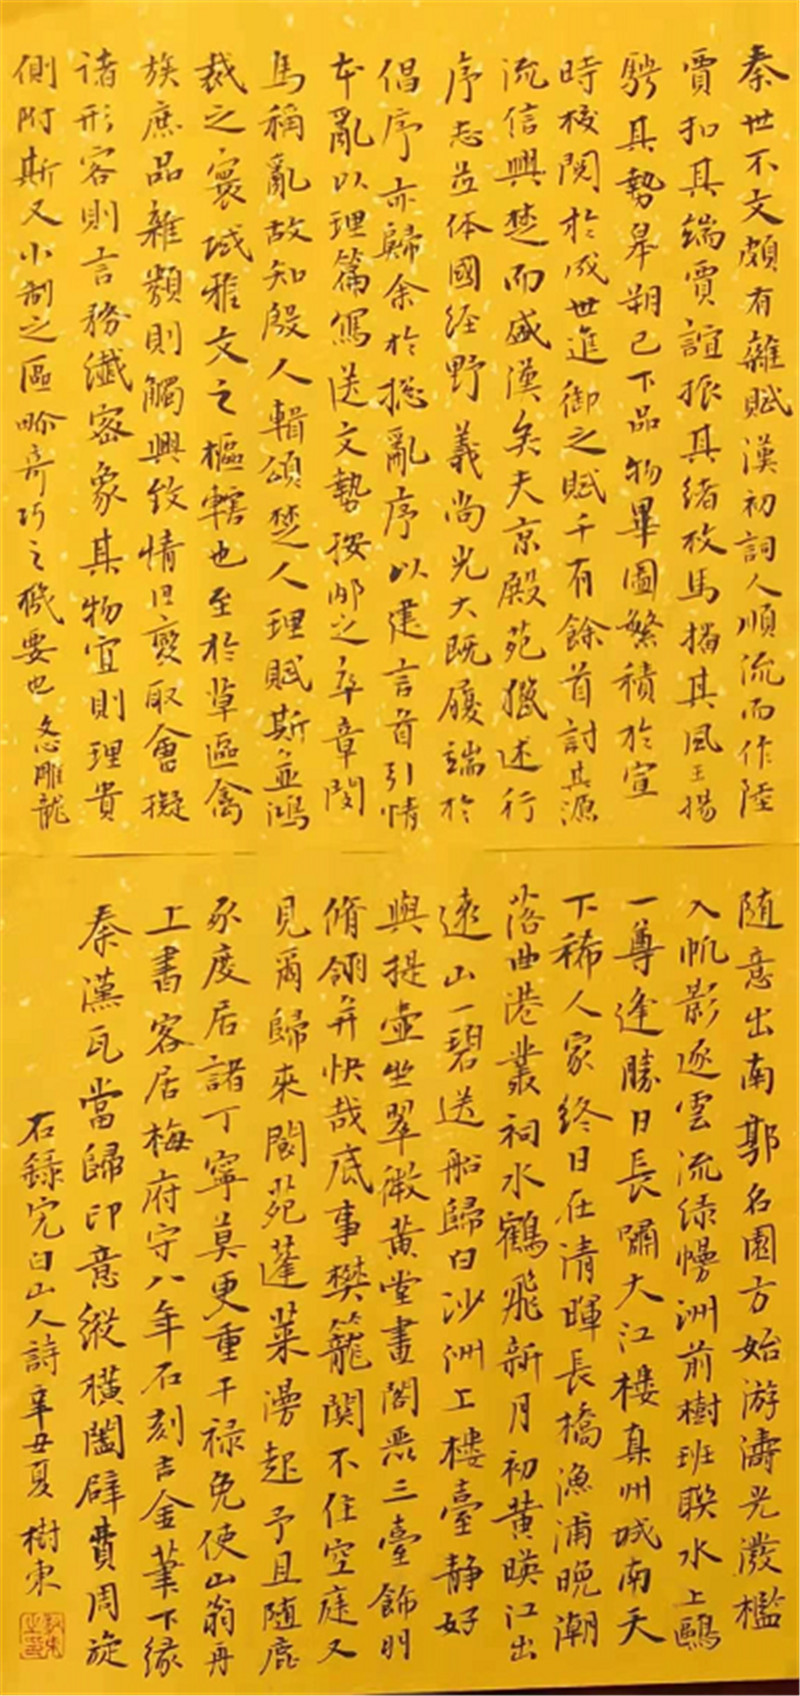 秦世不文頗有雜賦漢初詞人順流而作陸
賈扣其端賈誼振其緒枚馬播其風王揚
騁其勢皋朔已下品物畢圖繁積於宣
時校閱於成世進御之賦千有餘首討其源
流信興楚而盛漢矣夫京殿苑獵述行
序志並体國經野義尚光大既履端於
倡序亦歸余於揔亂序以建言首引情
本亂以理篇寫送文勢按那之卒章閔
馬稱亂故知殷人輯頌楚人理賦斯並鴻
裁之寰域雅文之樞轄也至於草區禽
族庶品雜類則觸興致情因變取會擬
諸形容則言務纖密象其物宜則理貴
側附斯又小制之區畛奇巧之機要也 文心雕龍
随意出南郭名園方始游濤光潑檻
入帆影逐雲流綠幔洲前樹班聯水上鷗
一尊逢勝日長嘯大江樓真州城南天
下稀人家終日在清暉長橋漁浦晚潮
落曲港叢祠水鶴飛新月初黄映江出
遠山一碧送船歸白沙洲上樓臺靜好
與提壺坐翠微黄堂畫閣三臺飾羽
脩翎弁快哉底事樊籠関不住空庭又
見爾歸來閬苑蓬萊漫起予且随鹿
豕度居諸丁寧莫更重干禄免使山翁再
上書客居梅府守八年石刻吉金筆下缘
秦漢瓦當歸印意縱横闔辟費周旋
右録完白山人詩辛丑夏 樹東